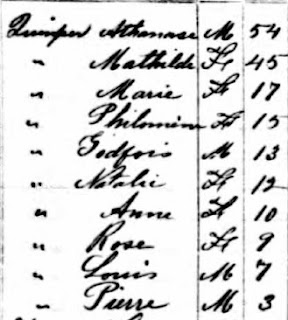 Quimper Athanase M 54
" Mathilde F 45
" Marie F 17
" Philomène F 15
" Godfois M 13
" Natalie F 12
" Anne F 10
" Rose F 9
" Louis M 7
" Pierre M 3